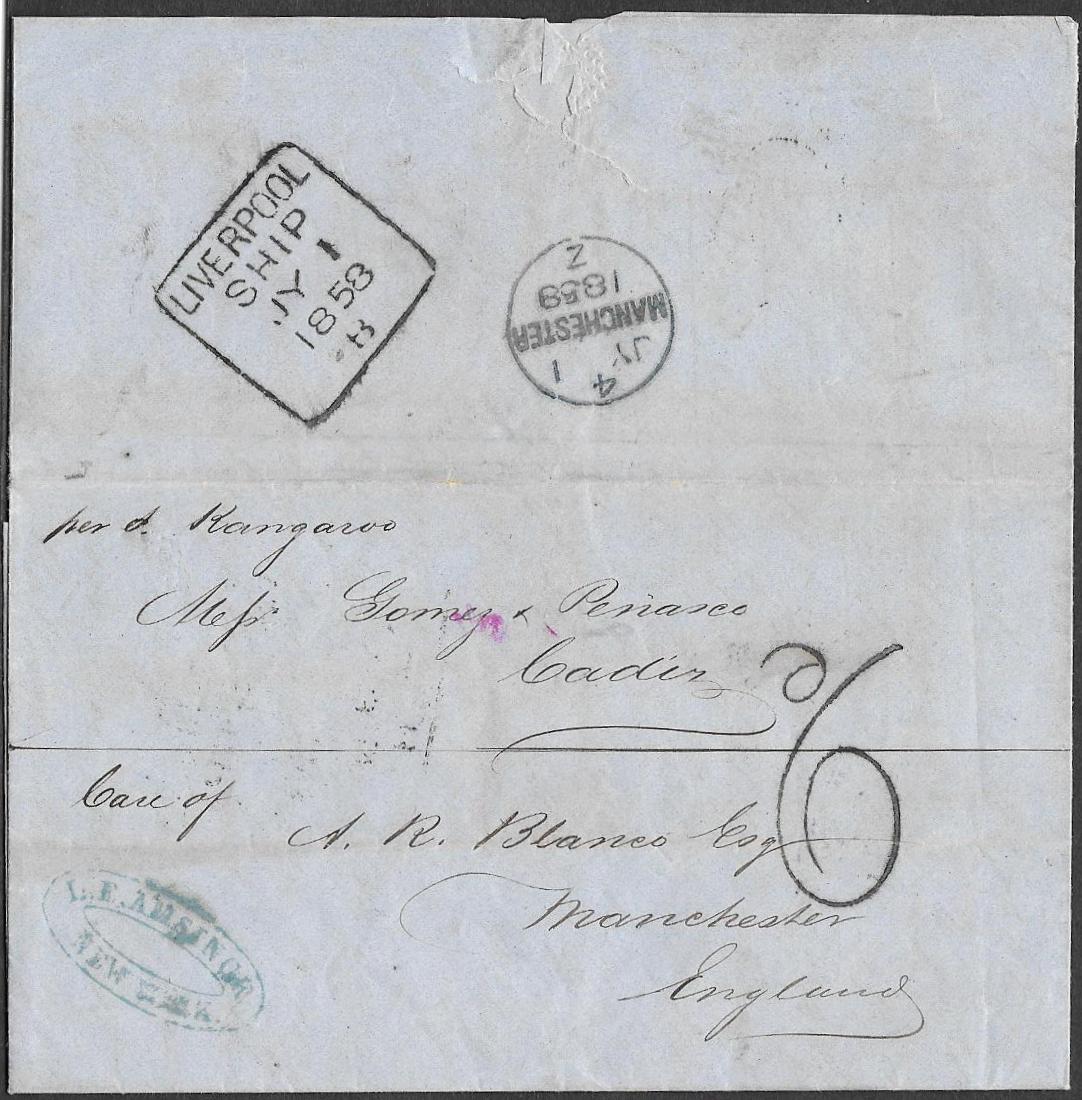 LIVERPOOL
SHIP
JY 1
1858
B
Z
1858
MANCHESTER
JY
4 1
per S. Kangaroo
Mess Gomez & Peñasco
Cadiz
6
Care of
A. R. Blanco Esq
Manchester
England
L. E. AMSINCK
NEW YORK